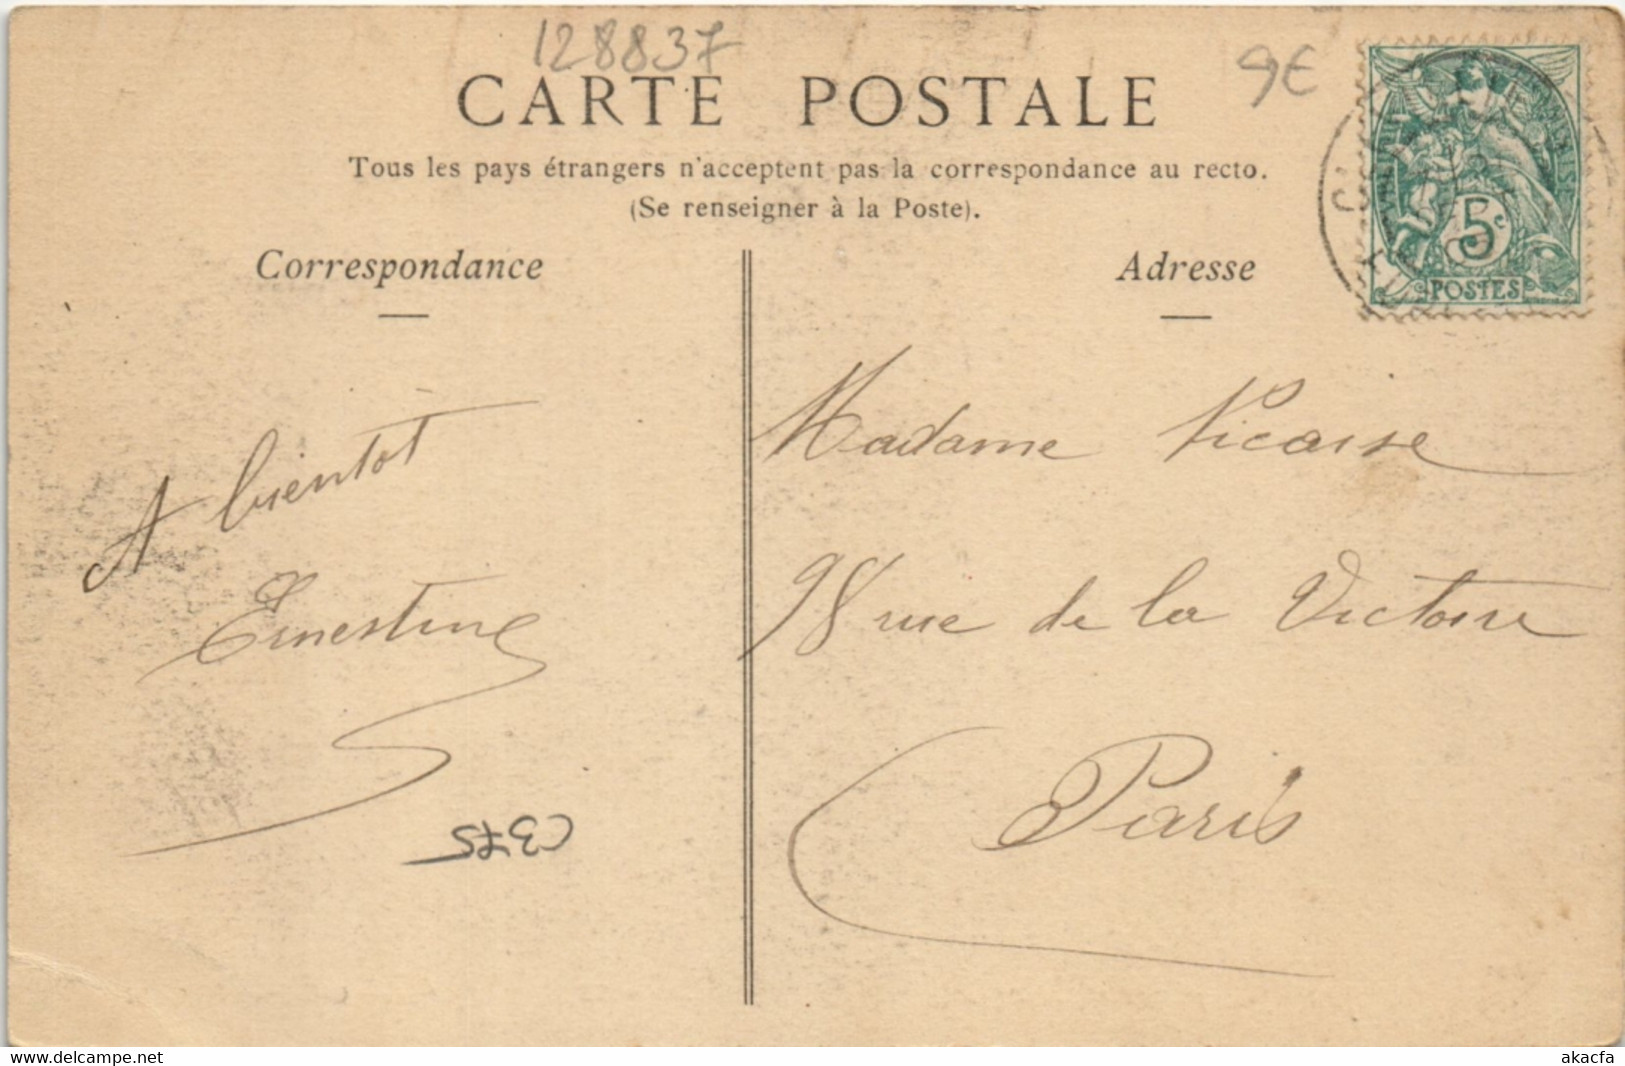 128837
9€
CARTE POSTALE
Tous les pays étrangers n'acceptent pas la correspondance au recto.
(Se renseigner à la Poste).
Correspondance
Adresse
5c
POSTES
A bientôt
Ernestine
C375
Madame
98 rue de la Victoire
Paris
www.delcampe.net
akacfa